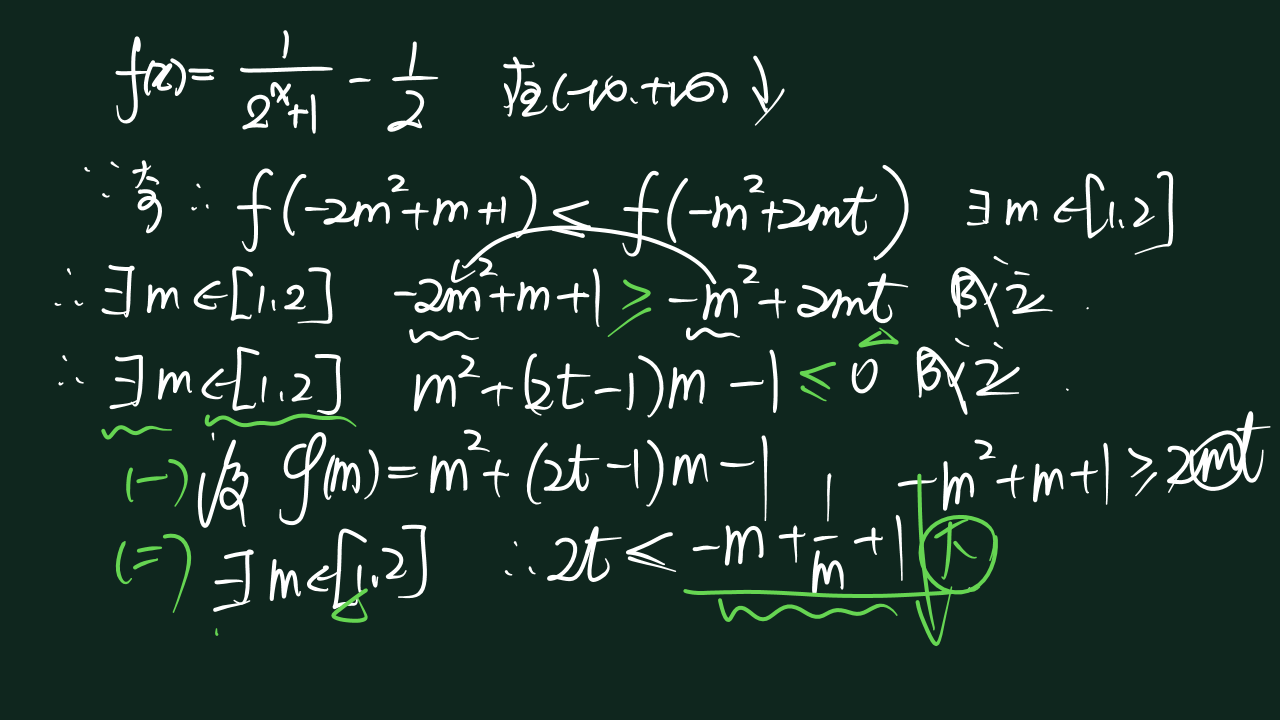 f(x) = 1/(2^x+1) - 1/2 在(-∞.+∞)↓
∵奇 ∴ f(-2m²+m+1) ≤ f(-m²+2mt) ∃m∈[1,2]
∴ ∃m∈[1,2] -2m²+m+1 ≥ -m²+2mt 成立.
∴ ∃m∈[1,2] m²+(2t-1)m-1 ≤ 0 成立.
(一) 设 g(m) = m²+(2t-1)m-1 -m²+m+1 ≥ 2mt
(二) ∃m∈[1,2] ∴ 2t ≤ -m+1/m+1 大